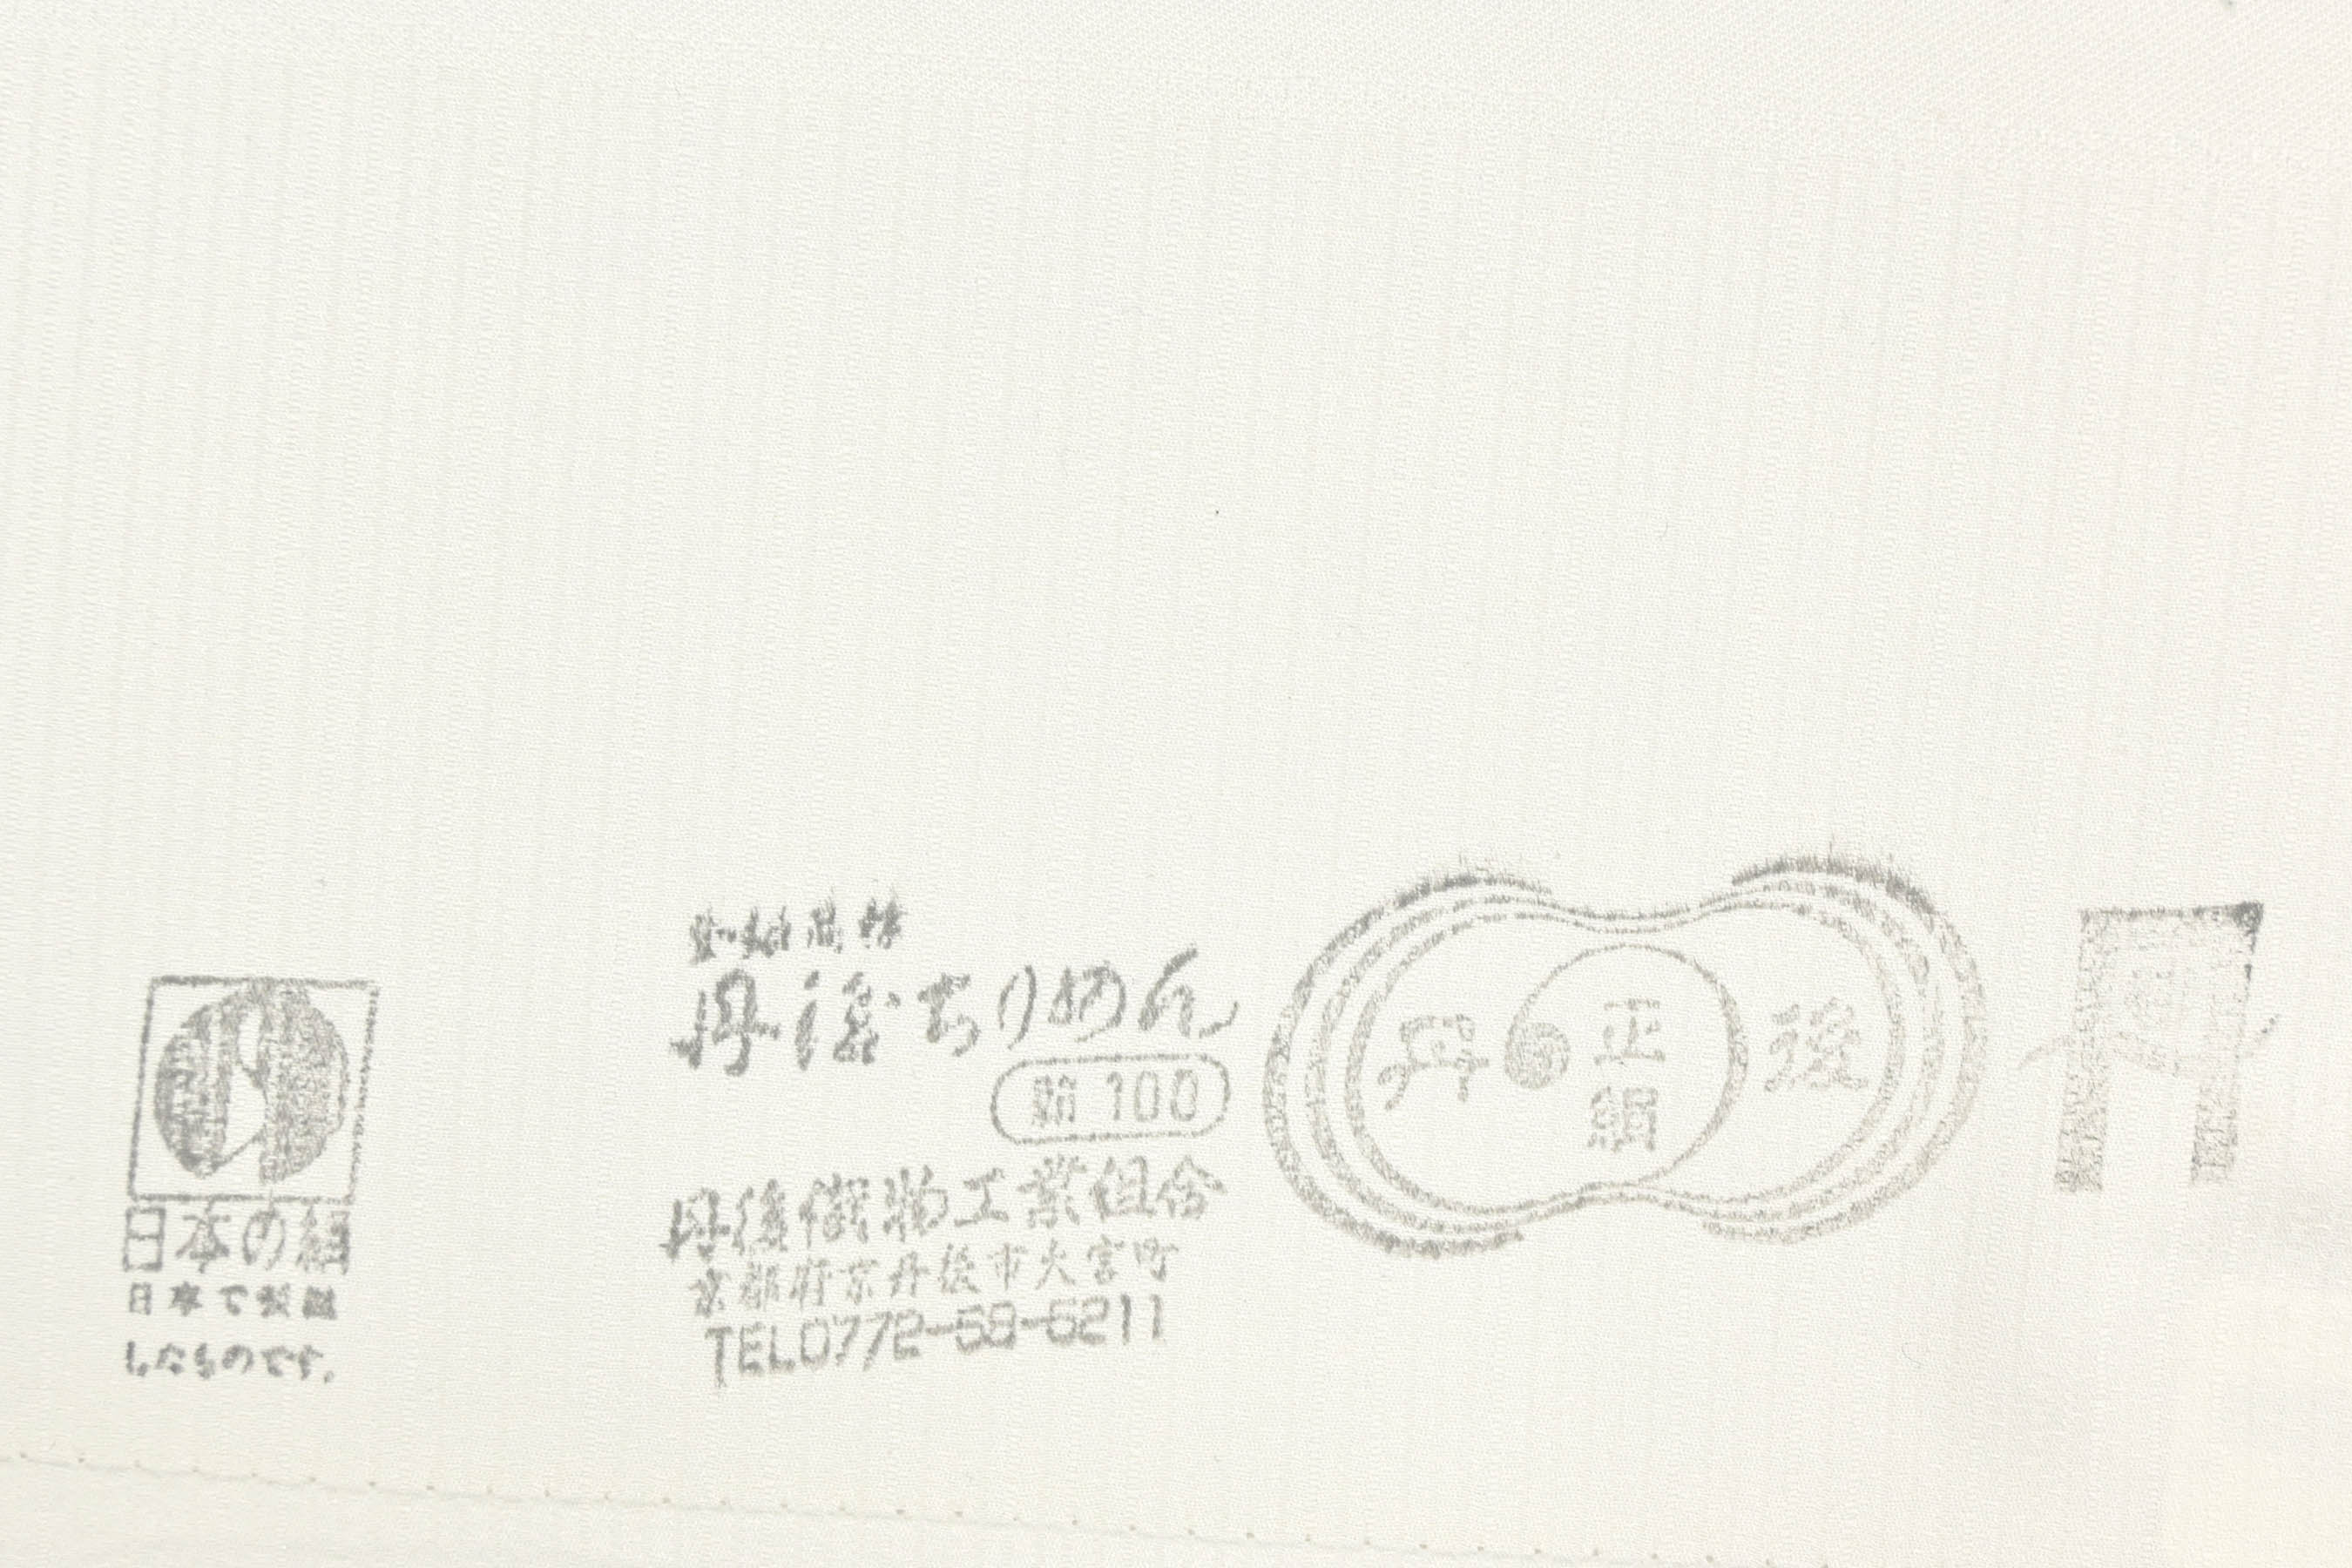 日本の絹
日本で製織
したものです。
丹後ちりめん
絹 100
丹後織物工業組合
京都府京丹後市大宮町
TEL0772-68-5211
丹 正絹 後